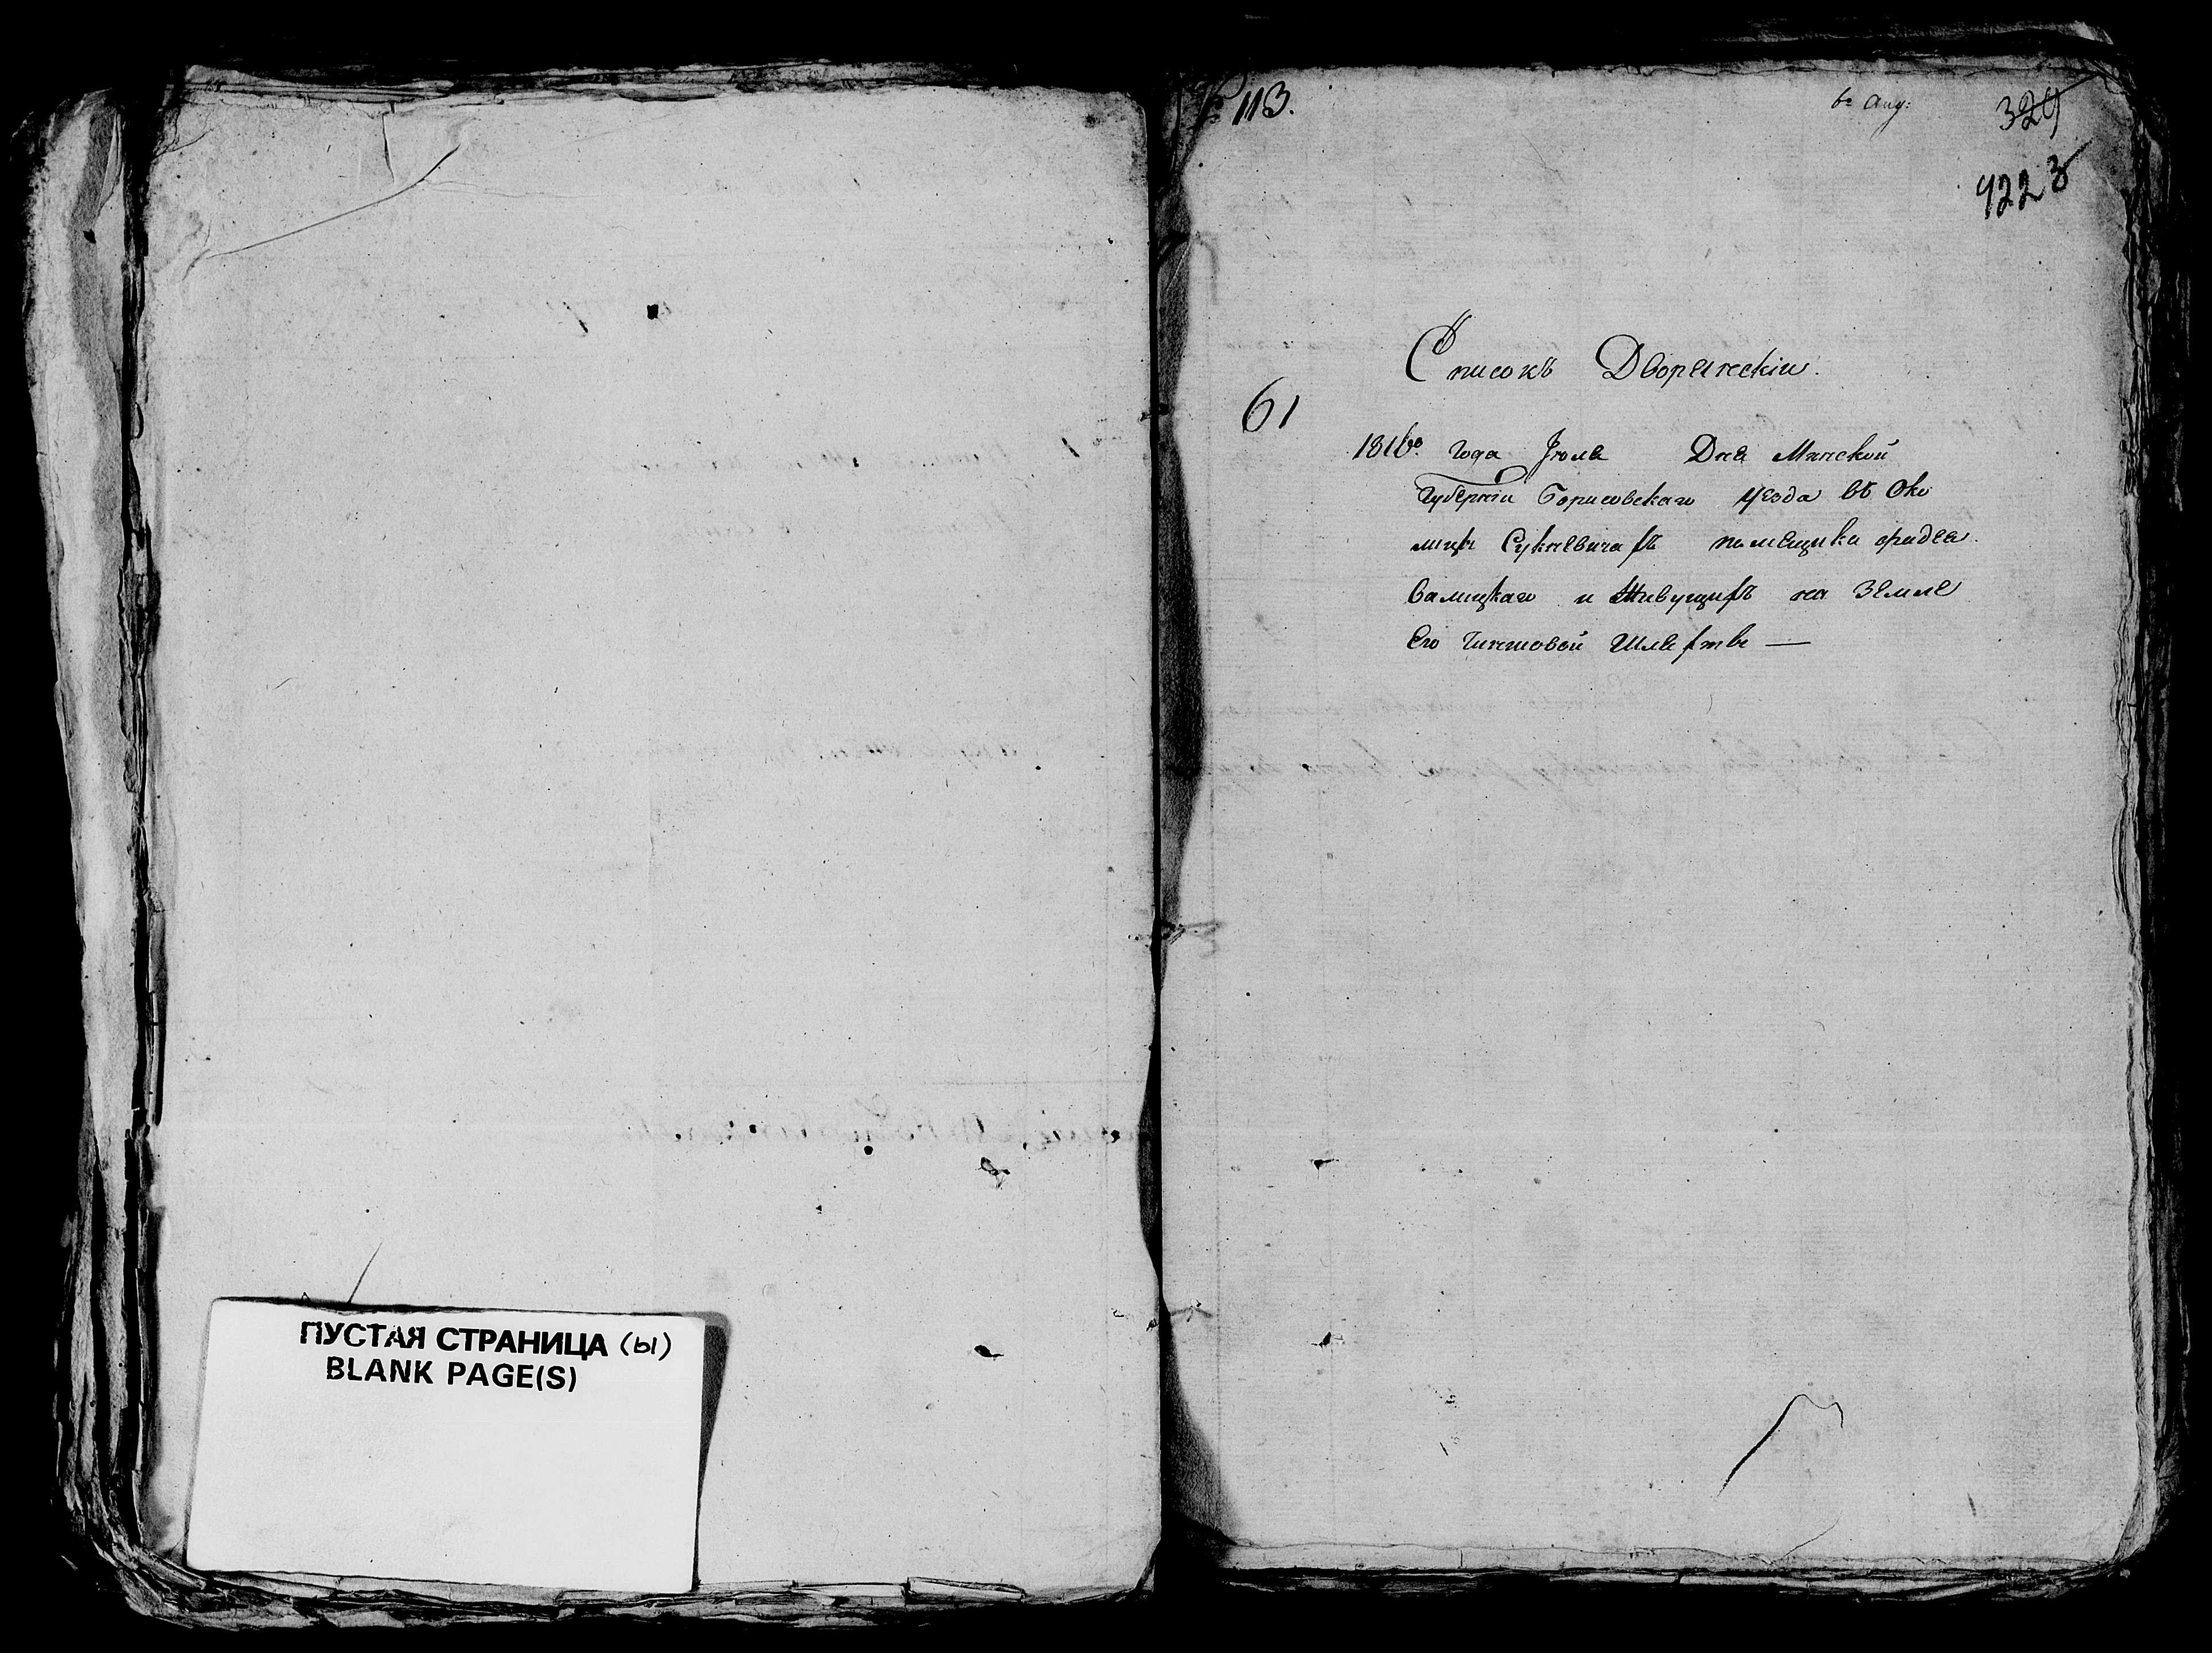 ПУСТАЯ СТРАНИЦА (Ы)
BLANK PAGE(S)
№ 113.
6° Aug:
329
422 3
Списокъ Дворянскiи.
61
1816го года Iюля Дня Минской
Губернiи Борисовскаго уезда въ Око
лицы Сукневичахъ помещика
Валицкаго и Живущихъ на Земле
Его Чиншовой Шляхты —